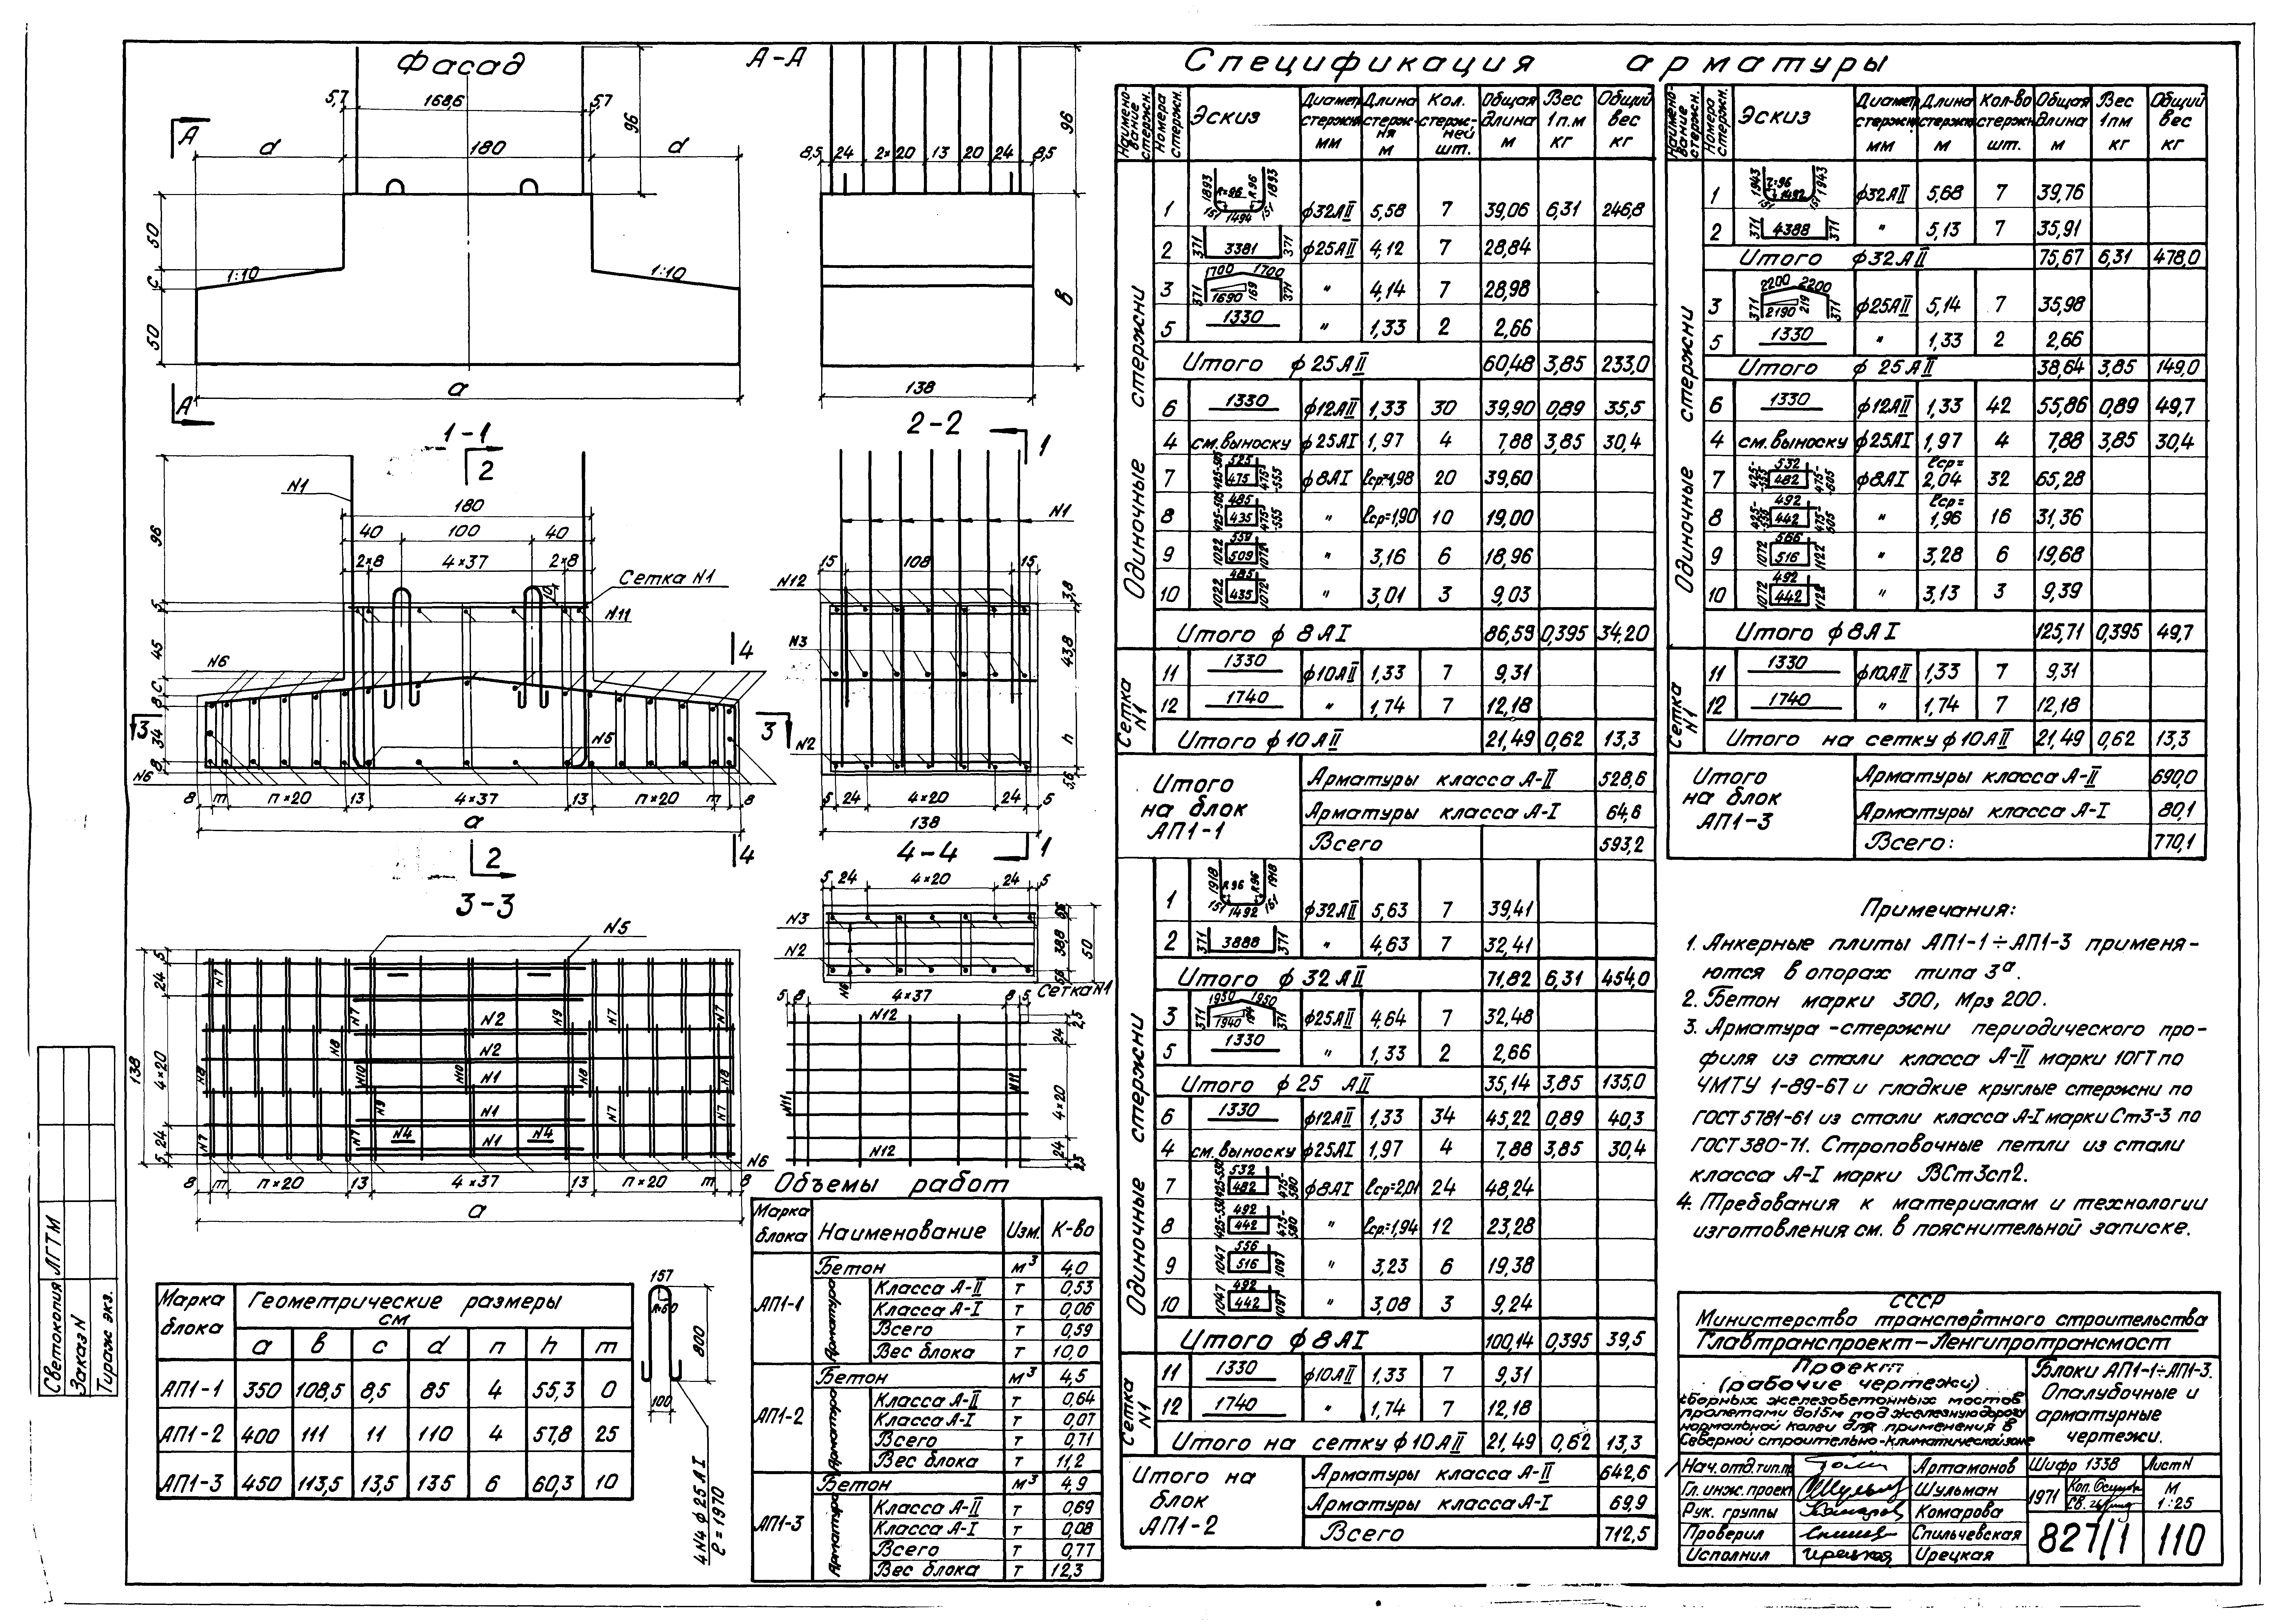 Фасад
А-А
5,7
168,6
5,7
96
А
d
180
d
50
1:10
1:10
с
50
а
А
96
8,5
24
2×20
13
20
24
8,5
в
138
1-1
2
N1
180
40
100
40
96
2×8
4×37
2×8
10
Сетка N1
N11
5
45
N6
4
с
8
3
34
N5
3
8
N6
8
m
п×20
13
4×37
13
п×20
m
8
а
2
4
2-2
1
N1
15
108
15
N12
3,8
N3
43,8
N2
h
5,6
5
24
4×20
24
5
138
4-4
1
5
24
4×20
24
5
N3
N2
38,8
50
5,6
N6
3-3
N5
5
24
138
4×20
24
5
N7
N7
N2
N9
N7
N7
N8
N2
N8
N10
N1
N10
N8
N8
N9
N1
N7
N7
N7
N7
N4
N1
N4
N6
8
m
п×20
13
4×37
13
п×20
m
8
а
Сетка N1
5
8
4×37
8
5
N12
2,5
24
4×20
24
2,5
N11
N11
N12
Марка блока
Геометрические размеры
см
а
в
с
d
п
h
m
АП1-1 350 108,5 8,5 85 4 55,3 0
АП1-2 400 111 11 110 4 57,8 25
АП1-3 450 113,5 13,5 135 6 60,3 10
157
R=60
800
100
4N4 ф25АI
ℓ=1970
Объемы работ
Марка блока
Наименование
Изм.
К-во
АП1-1
Бетон м³ 4,0
Арматура
Класса А-II т 0,53
Класса А-I т 0,06
Всего т 0,59
Вес блока т 10,0
АП1-2
Бетон м³ 4,5
Арматура
Класса А-II т 0,64
Класса А-I т 0,07
Всего т 0,71
Вес блока т 11,2
АП1-3
Бетон м³ 4,9
Арматура
Класса А-II т 0,69
Класса А-I т 0,08
Всего т 0,77
Вес блока т 12,3
Спецификация арматуры
Наименование стержн.
Номера стержн.
Эскиз
Диаметр стержня мм
Длина стержня м
Кол. стержней шт.
Общая длина м
Вес 1п.м кг
Общий вес кг
Одиночные стержни
1 1893 R=96 R96 1893 151 1494 151 ф32АII 5,58 7 39,06 6,31 246,8
2 371 3381 371 ф25АII 4,12 7 28,84
3 1700 1700 371 1690 169 371 " 4,14 7 28,98
5 1330 " 1,33 2 2,66
Итого ф25АII 60,48 3,85 233,0
6 1330 ф12АII 1,33 30 39,90 0,89 35,5
4 см.выноску ф25АI 1,97 4 7,88 3,85 30,4
7 425-505 525 475 475-555 ф8АI ℓср=1,98 20 39,60
8 425-505 485 435 475-555 " ℓср=1,90 10 19,00
9 1022 509 1072 " 3,16 6 18,96
10 1022 485 435 1072 " 3,01 3 9,03
Итого ф8АI 86,59 0,395 34,20
Сетка N1
11 1330 ф10АII 1,33 7 9,31
12 1740 " 1,74 7 12,18
Итого ф10АII 21,49 0,62 13,3
Итого на блок АП1-1
Арматуры класса А-II 528,6
Арматуры класса А-I 64,6
Всего 593,2
Одиночные стержни
1 1918 R96 R96 1918 151 1492 151 ф32АII 5,63 7 39,41
2 371 3888 371 " 4,63 7 32,41
Итого ф32АII 71,82 6,31 454,0
3 1950 1950 371 1940 371 ф25АII 4,64 7 32,48
5 1330 " 1,33 2 2,66
Итого ф25 АII 35,14 3,85 135,0
6 1330 ф12АII 1,33 34 45,22 0,89 40,3
4 см.выноску ф25АI 1,97 4 7,88 3,85 30,4
7 425-530 532 482 475-580 ф8АI ℓср=2,01 24 48,24
8 425-530 492 442 475-580 " ℓср=1,94 12 23,28
9 1047 556 516 1097 " 3,23 6 19,38
10 1047 492 442 1097 " 3,08 3 9,24
Итого ф8АI 100,14 0,395 39,5
Сетка N1
11 1330 ф10АII 1,33 7 9,31
12 1740 " 1,74 7 12,18
Итого на сетку ф10АII 21,49 0,62 13,3
Итого на блок АП1-2
Арматуры класса А-II 642,6
Арматуры класса А-I 69,9
Всего 712,5
Наименование стержн.
Номера стержн.
Эскиз
Диаметр стержн мм
Длина стержн м
Кол-во стержн шт.
Общая длина м
Вес 1пм кг
Общий вес кг
Одиночные стержни
1 1943 1492 1943 151 151 ф32АII 5,68 7 39,76
2 371 4388 371 " 5,13 7 35,91
Итого ф32АII 75,67 6,31 478,0
3 2200 2200 371 2190 219 371 ф25АII 5,14 7 35,98
5 1330 " 1,33 2 2,66
Итого ф25АII 38,64 3,85 149,0
6 1330 ф12АII 1,33 42 55,86 0,89 49,7
4 см.выноску ф25АI 1,97 4 7,88 3,85 30,4
7 532 482 475-605 ф8АI ℓср=2,04 32 65,28
8 492 442 475-605 " ℓср=1,96 16 31,36
9 1072 566 516 1122 " 3,28 6 19,68
10 1072 492 442 1122 " 3,13 3 9,39
Итого ф8АI 125,71 0,395 49,7
Сетка N1
11 1330 ф10АII 1,33 7 9,31
12 1740 " 1,74 7 12,18
Итого на сетку ф10АII 21,49 0,62 13,3
Итого на блок АП1-3
Арматуры класса А-II 690,0
Арматуры класса А-I 80,1
Всего: 770,1
Примечания:
1. Анкерные плиты АП1-1÷АП1-3 применя-
ются в опорах типа 3ª.
2. Бетон марки 300, Мрз 200.
3. Арматура -стержни периодического про-
филя из стали класса А-II марки 10ГТ по
ЧМТУ 1-89-67 и гладкие круглые стержни по
ГОСТ 5781-61 из стали класса А-I марки Ст3-3 по
ГОСТ 380-71. Строповочные петли из стали
класса А-I марки ВСт3сп2.
4. Требования к материалам и технологии
изготовления см. в пояснительной записке.
СССР
Министерство транспортного строительства
Главтранспроект-Ленгипротрансмост
Проект
(рабочие чертежи)
сборных железобетонных мостов
пролетами до15м под железную дорогу
нормальной колеи для применения в
Северной строительно-климатической зоне
Блоки АП1-1÷АП1-3.
Опалубочные и
арматурные
чертежи.
Нач.отд.тип.пр Артамонов
Гл. инж. проект Шульман
Рук. группы Комарова
Проверил Спильчевская
Исполнил Ирецкая
Шифр 1338
Лист N
1971
Коп.
Св.
М
1:25
827/1
110
Светокопия ЛГТМ
Заказ N
Тираж экз.